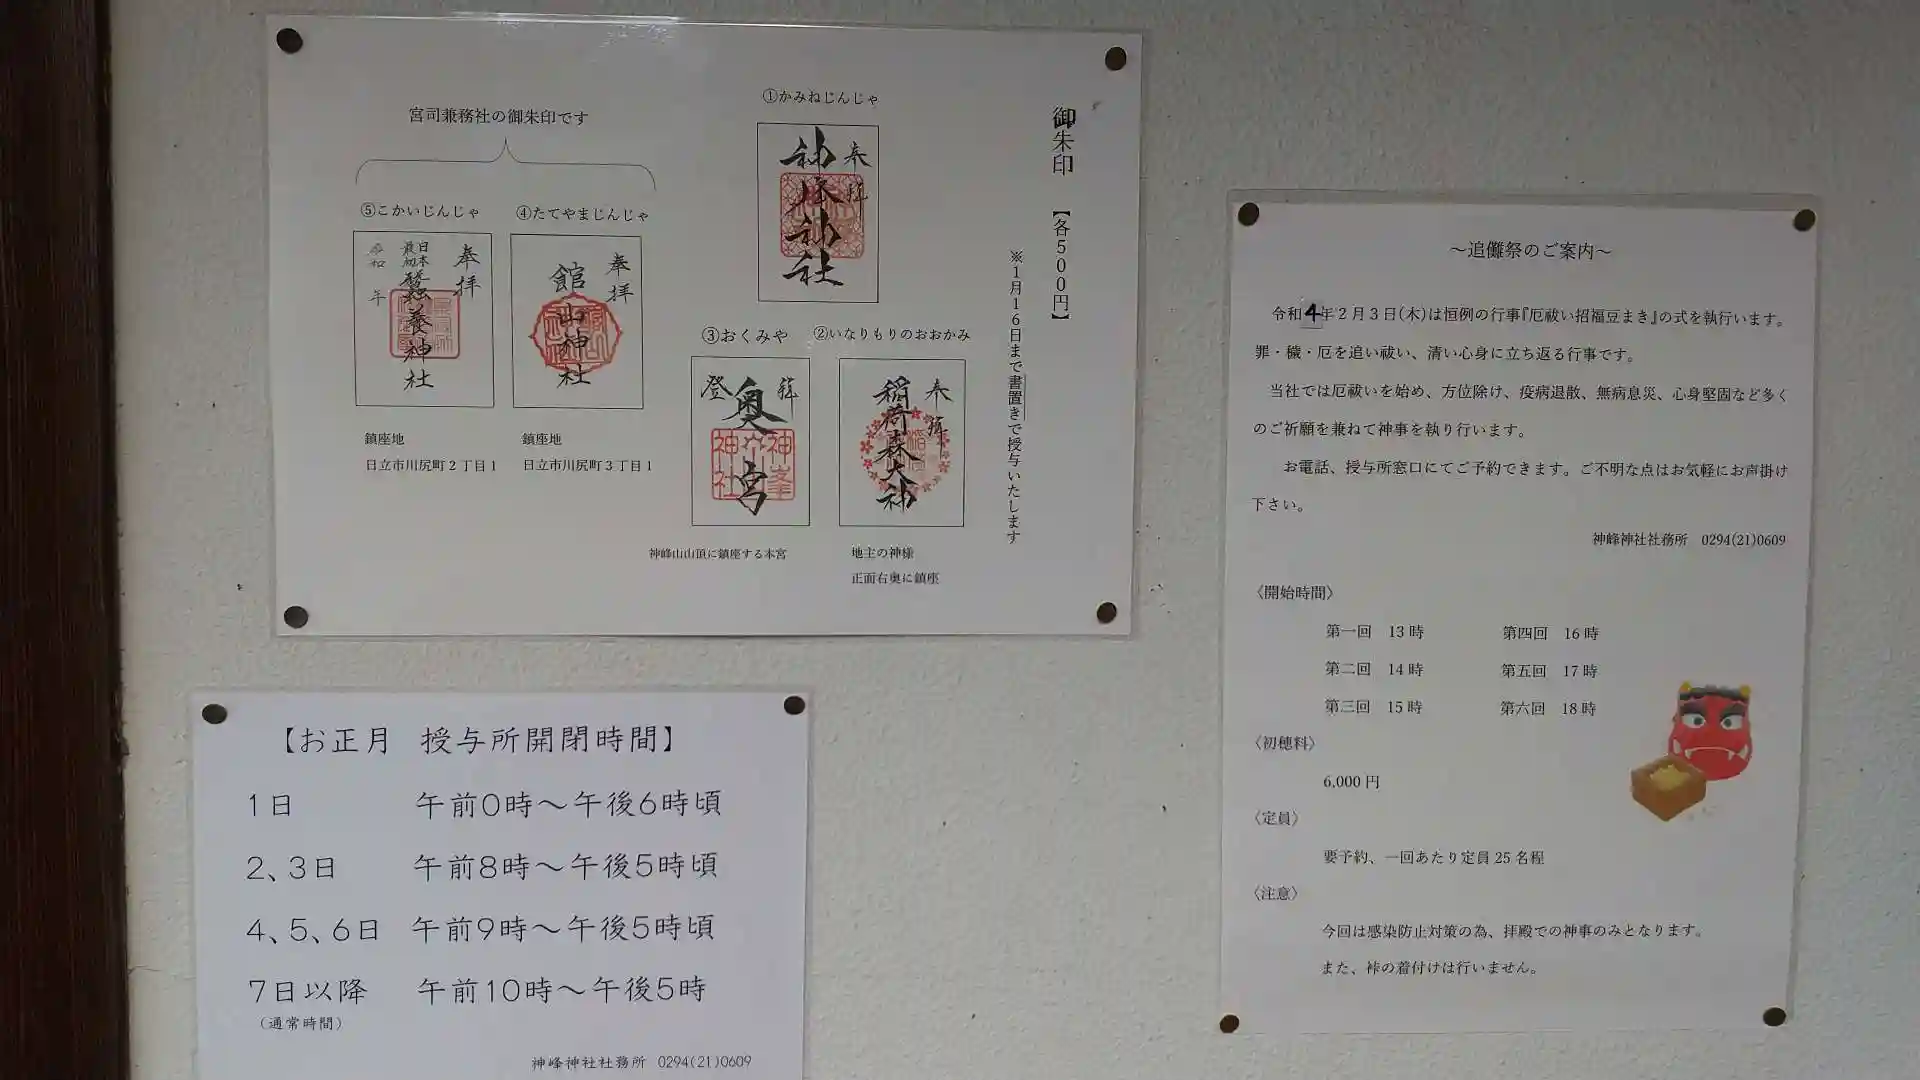 御朱印 【各500円】
※1月16日まで書置きで授与いたします
①かみねじんじゃ
奉拝
神峰神社
②いなりもりのおおかみ
奉拝
稲荷森大神
地主の神様
正面右奥に鎮座
③おくみや
登拝
奥宮
神峰山山頂に鎮座する本宮
宮司兼務社の御朱印です
④たてやまじんじゃ
奉拝
館山神社
鎮座地
日立市川尻町3丁目1
⑤こかいじんじゃ
奉拝
日本最初
蠶養神社
令和 年
鎮座地
日立市川尻町2丁目1
【お正月 授与所開閉時間】
1日 午前0時～午後6時頃
2、3日 午前8時～午後5時頃
4、5、6日 午前9時～午後5時頃
7日以降 午前10時～午後5時
（通常時間）
神峰神社社務所 0294(21)0609
～追儺祭のご案内～
令和4年2月3日(木)は恒例の行事『厄祓い招福豆まき』の式を執行います。
罪・穢・厄を追い祓い、清い心身に立ち返る行事です。
当社では厄祓いを始め、方位除け、疫病退散、無病息災、心身堅固など多く
のご祈願を兼ねて神事を執り行います。
お電話、授与所窓口にてご予約できます。ご不明な点はお気軽にお声掛け
下さい。
神峰神社社務所 0294(21)0609
〈開始時間〉
第一回 13時 第四回 16時
第二回 14時 第五回 17時
第三回 15時 第六回 18時
〈初穂料〉
6,000円
〈定員〉
要予約、一回あたり定員25名程
〈注意〉
今回は感染防止対策の為、拝殿での神事のみとなります。
また、裃の着付けは行いません。